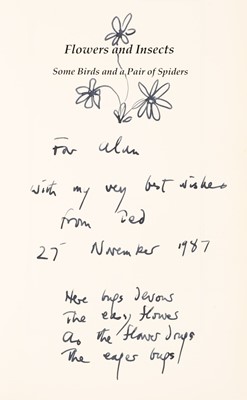 Flowers and Insects
Some Birds and a Pair of Spiders
For Alan
With my very best wishes
from Ted
25 November 1987
Here bugs devour
The easy flower
As the flower drugs
The eager bugs